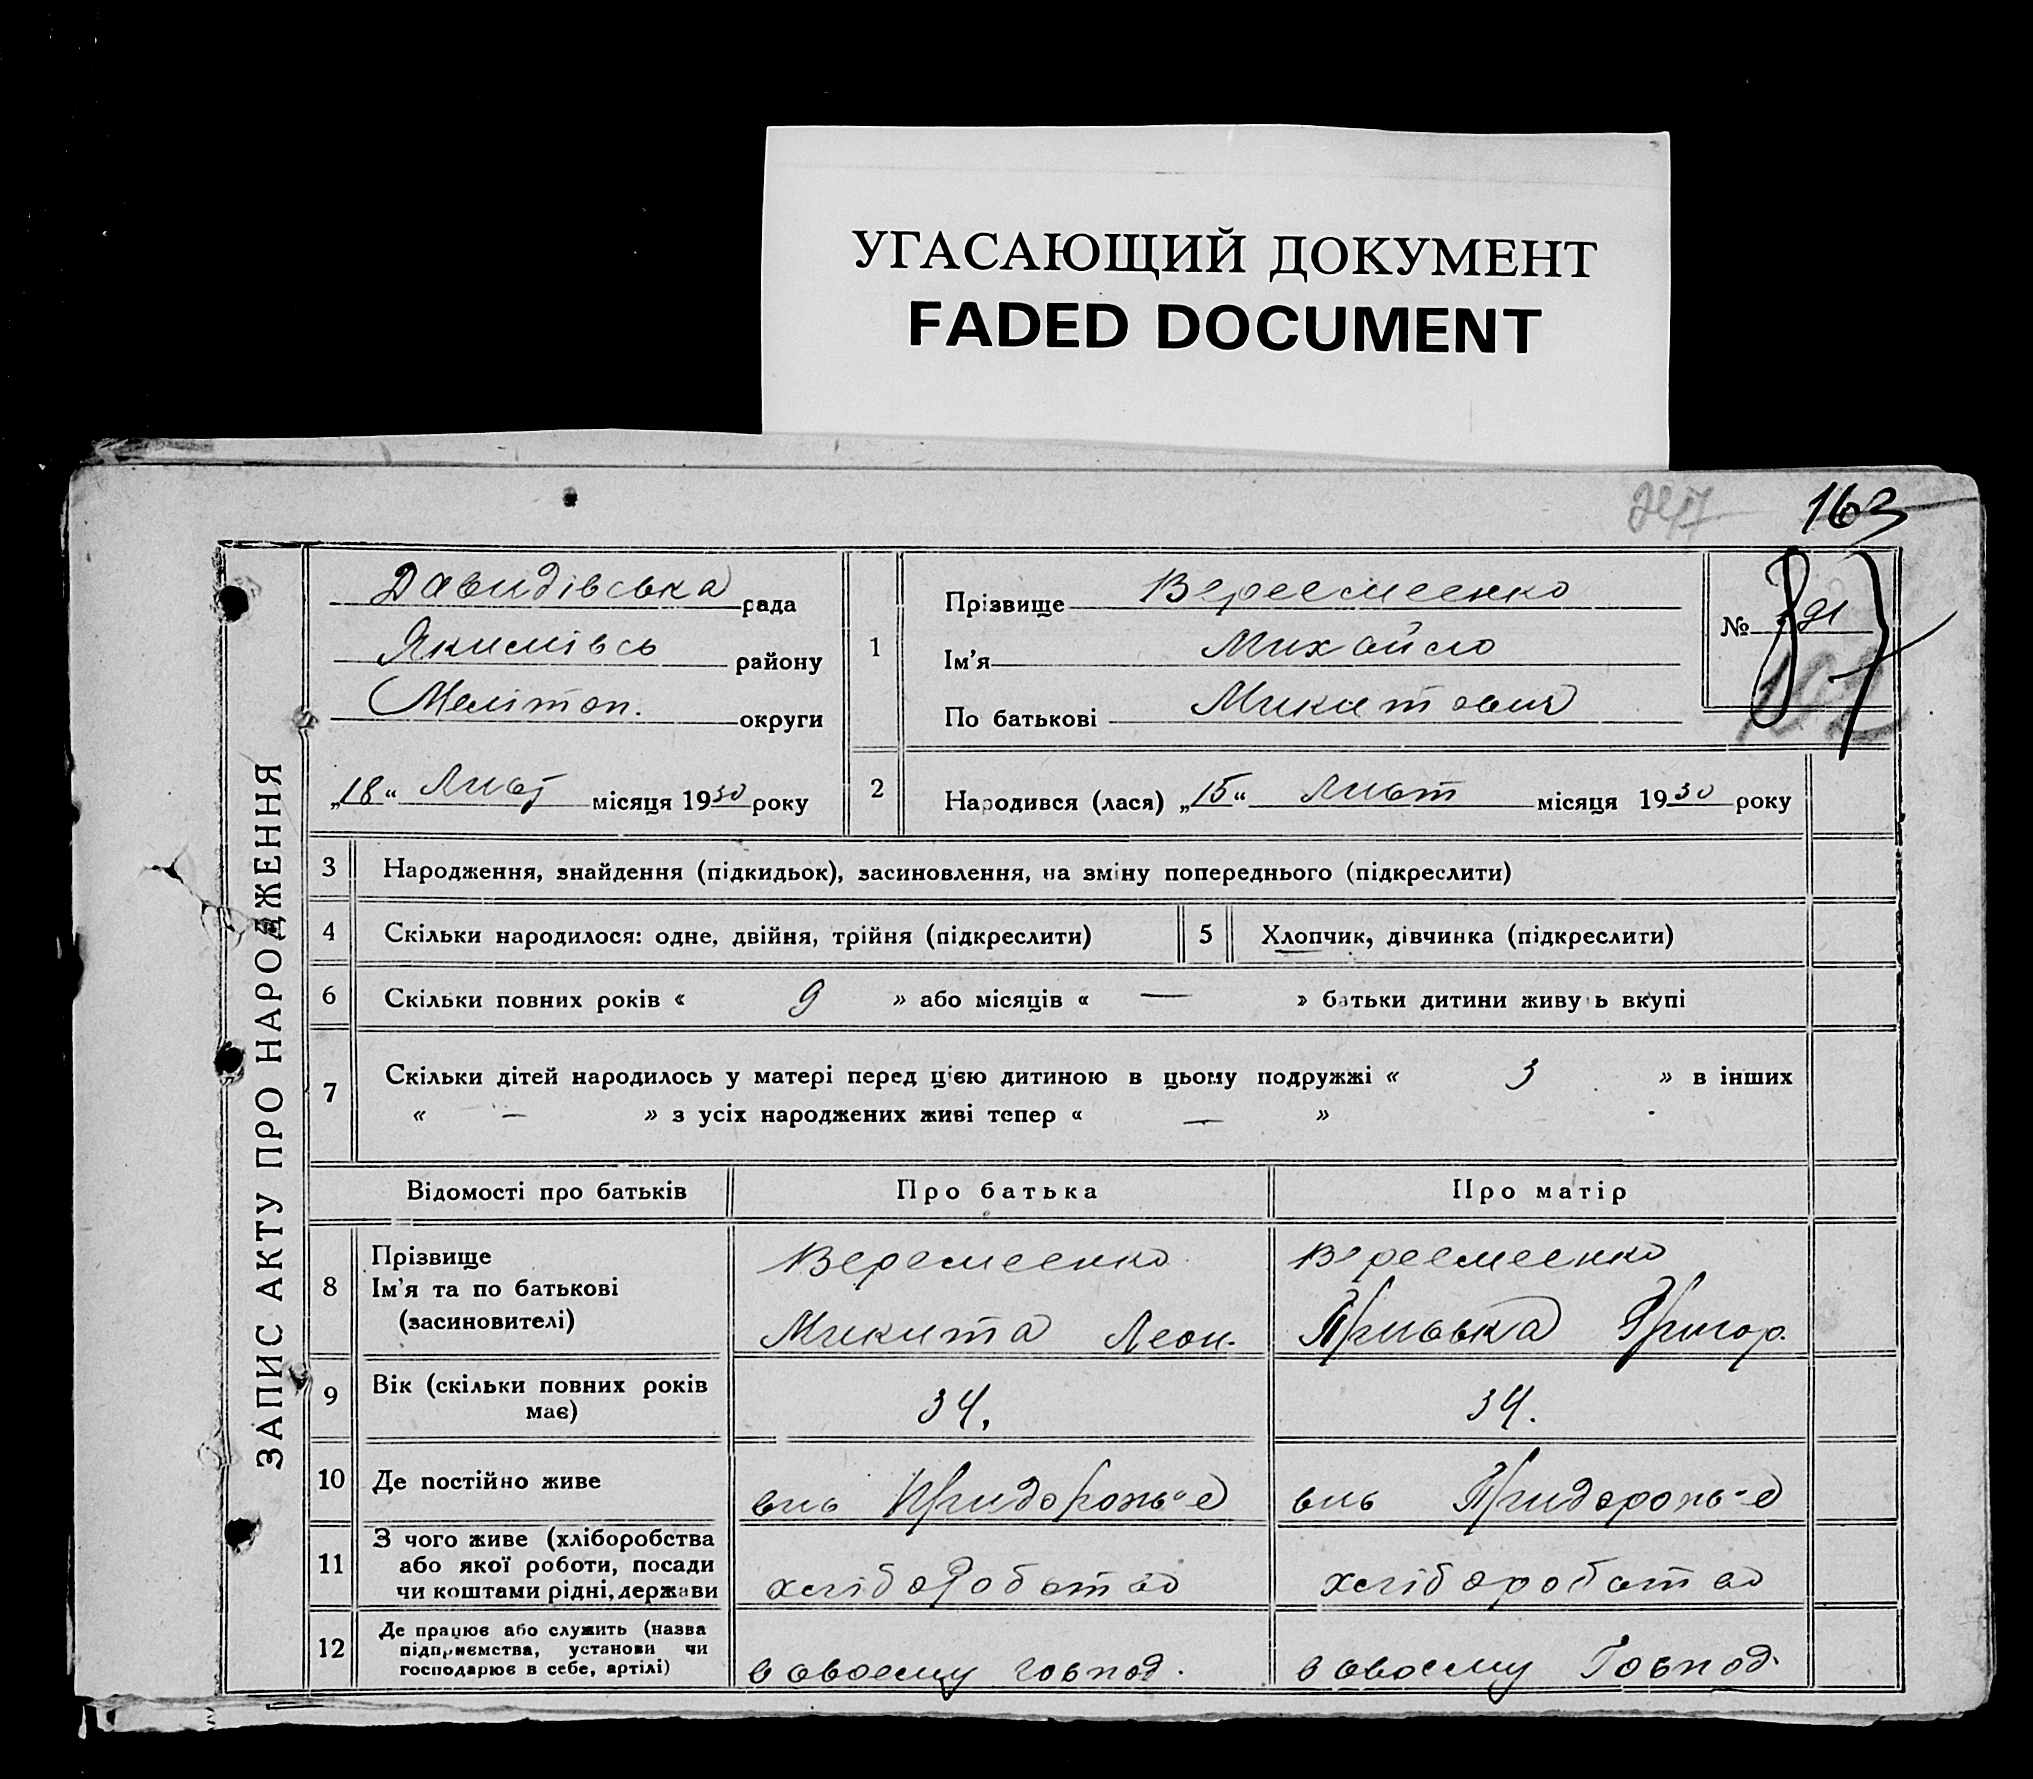 УГАСАЮЩИЙ ДОКУМЕНТ
FADED DOCUMENT
163
ЗАПИС АКТУ ПРО НАРОДЖЕННЯ
Давидівська рада
Якимівсь району
Меліто́п. округи
„18“ Лют місяця 1930 року
1
Прізвище Вересмеенко
Ім’я Михайло
По батькові Микитович
№ 91
102
2
Народився (лася) „15“ Лют місяця 1930 року
3 Народження, знайдення (підкидьок), засиновлення, на зміну попереднього (підкреслити)
4 Скільки народилося: одне, двійня, трійня (підкреслити)
5 Хлопчик, дівчинка (підкреслити)
6 Скільки повних років « 9 » або місяців « — » батьки дитини живуть вкупі
7 Скільки дітей народилось у матері перед цією дитиною в цьому подружжі « 3 » в інших
« — » з усіх народжених живі тепер « — »
Відомості про батьків Про батька Про матір
8 Прізвище
Ім’я та по батькові
(засиновителі)
Вересмеенко
Микита Леон.
Вересмеенко
Григор.
9 Вік (скільки повних років
має)
34,
34.
10 Де постійно живе
11 З чого живе (хліборобства
або якої роботи, посади
чи коштами рідні, держави
хліборобство
хліборобство
12 Де працює або служить (назва
підприємства, установи чи
господарює в себе, артілі)
в своему господ.
в своему Господ.